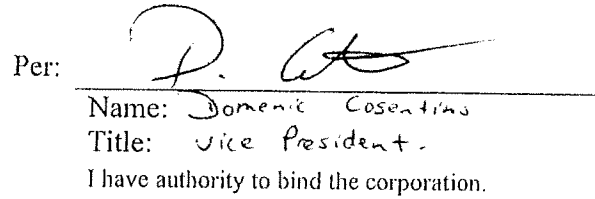 Per:
Name: Domenic Cosentino
Title: Vice President.
I have authority to bind the corporation.